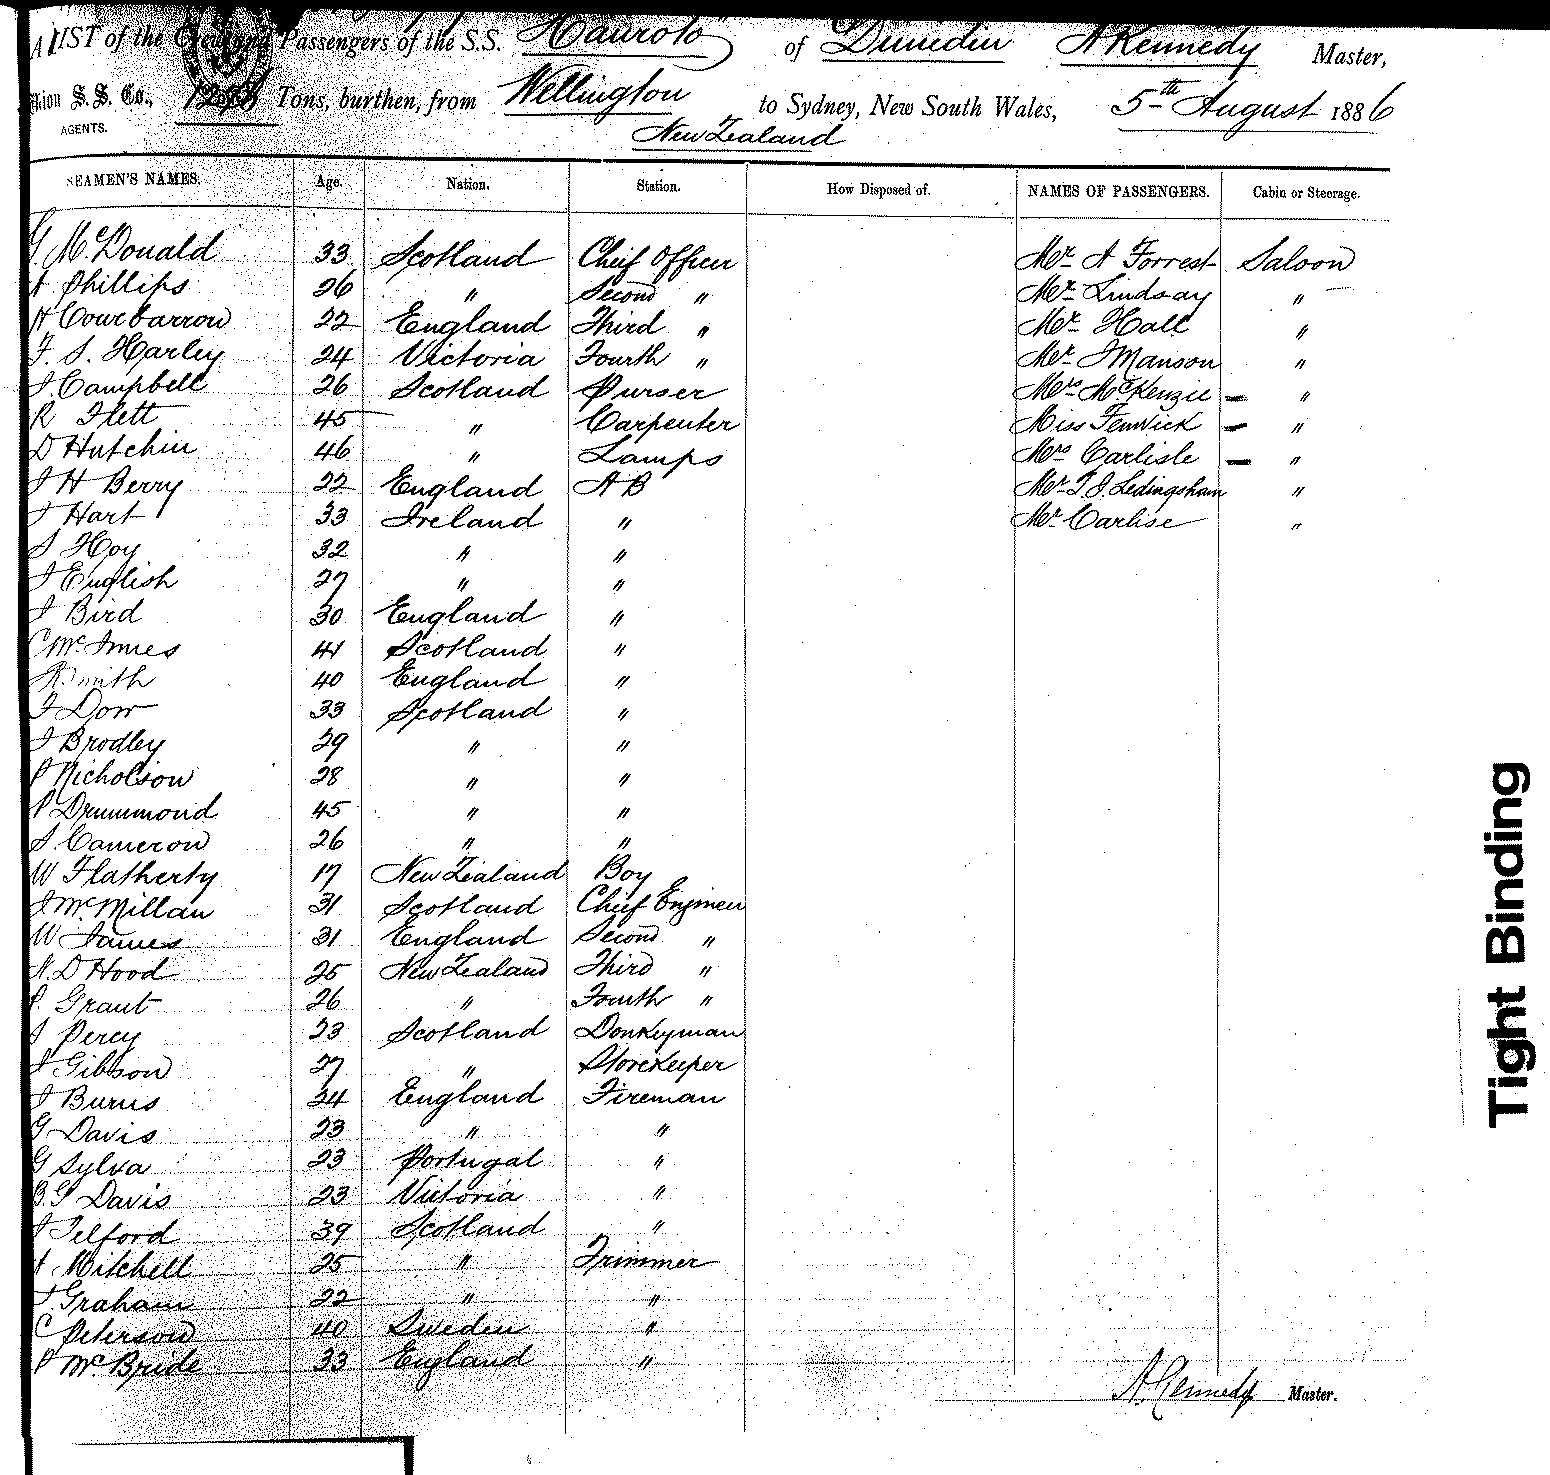 A LIST of the Crew and Passengers of the S.S. Hauroto of Dunedin A Kennedy Master,
Union S. S. Co., Tons, burthen, from Wellington to Sydney, New South Wales, 5th August 1886
AGENTS. New Zealand
SEAMEN'S NAMES. Age. Nation. Station. How Disposed of. NAMES OF PASSENGERS. Cabin or Steerage.
G McDonald 33 Scotland Cheif Officer Mr A Forrest Saloon
A Phillips 26 " Second " Mr Lindsay "
H Courbarron 22 England Third " Mr Hall "
F. S. Harley 24 Victoria Fourth " Mr J Manson "
J. Campbell 26 Scotland Purser Mrs McKenzie - "
R Flett 45 " Carpenter Miss Fenwick - "
D Hutchin 46 " Lamps Mrs Carlisle - "
J H Berry 22 England A B Mr T. J. Ledingsham "
J Hart 33 Ireland " Mr Carlise "
J Hoy 32 " "
J English 27 " "
J Bird 30 England "
C McInnes 41 Scotland "
Smith 40 England "
J Dow 33 Scotland "
J Brodley 29 " "
P Nicholson 28 " "
P Drummond 45 " "
J. Cameron 26 " "
W Flatherty 17 New Zealand Boy
J McMillan 31 Scotland Chief Engineer
W James 31 England Second "
N. D Hood 25 New Zealand Third "
P. Grant 26 " Fourth "
J Percy 23 Scotland Donkeyman
J Gibson 27 " Storekeeper
J Burns 34 England Fireman
G Davis 23 " "
G Sylva 23 Portugal "
B. G Davis 23 Victoria "
J Telford 39 Scotland "
A Mitchell 25 " Trimmer
J Graham 22 " "
C Peterson 40 Sweden "
P McBride 33 England "
A. Kennedy Master.
Tight Binding